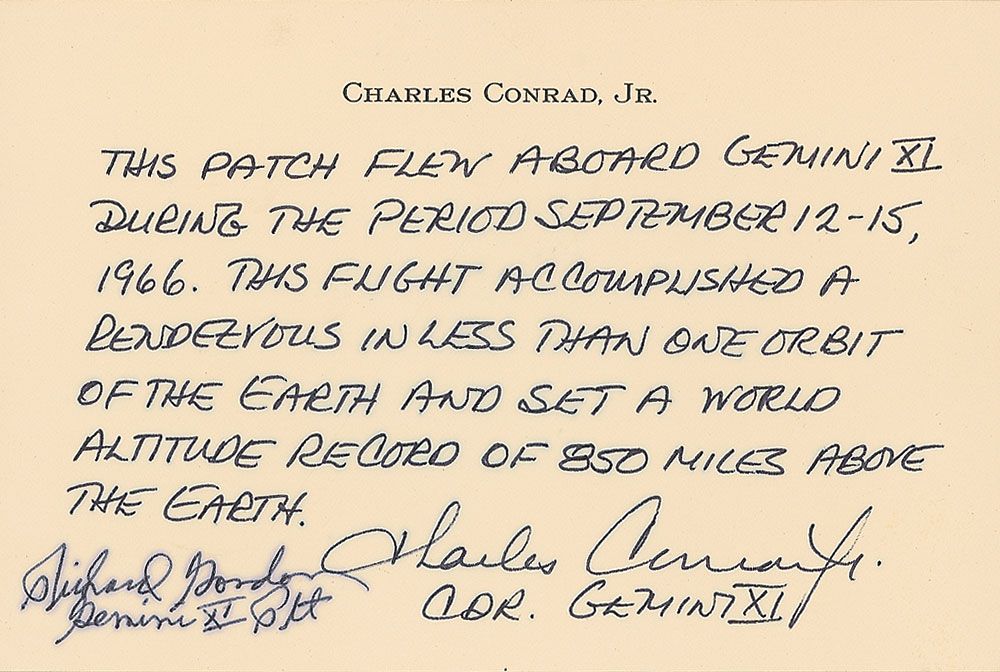 CHARLES CONRAD, JR.
THIS PATCH FLEW ABOARD GEMINI XI
DURING THE PERIOD SEPTEMBER 12-15,
1966. THIS FLIGHT ACCOMPLISHED A
RENDEZVOUS IN LESS THAN ONE ORBIT
OF THE EARTH AND SET A WORLD
ALTITUDE RECORD OF 850 MILES ABOVE
THE EARTH.
Charles Conrad Jr.
CDR. GEMINI XI
Richard Gordon
Gemini XI Plt